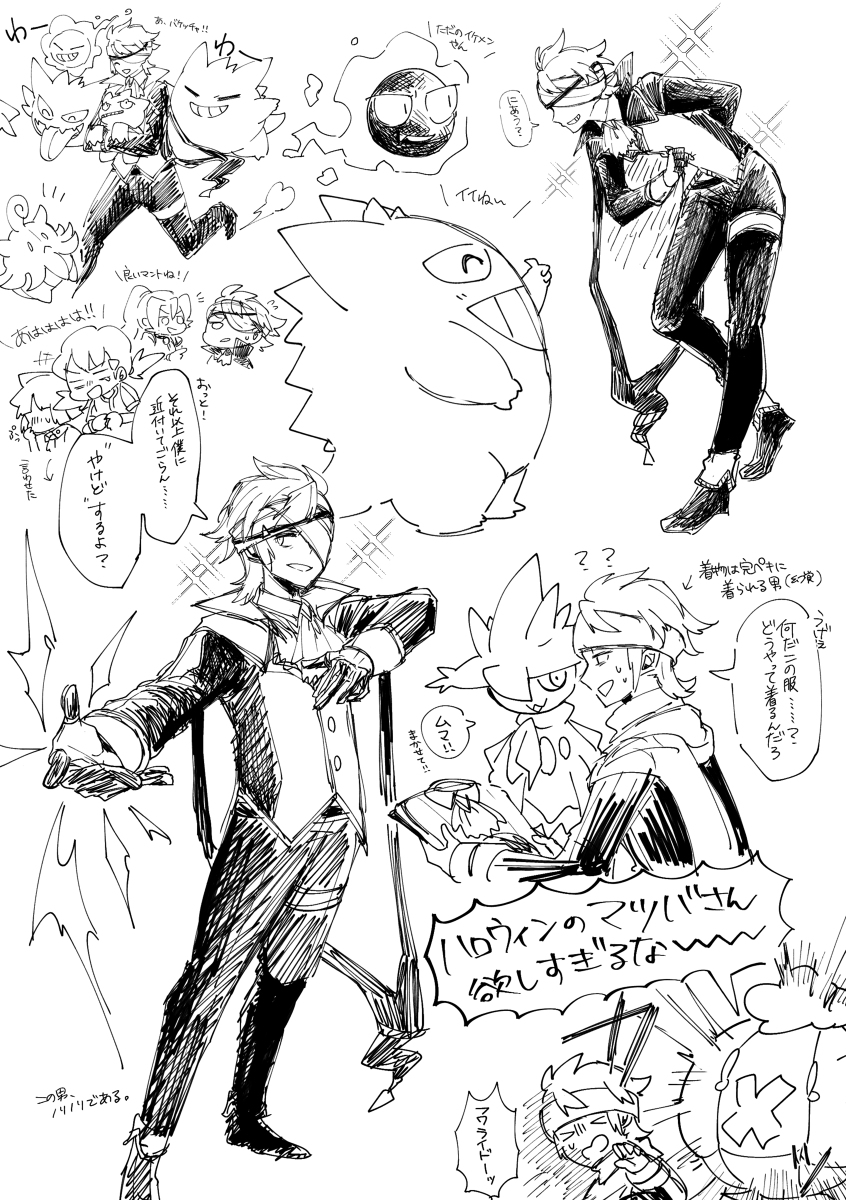 わー
あ、バケッチャ!!
わー
ただのイケメン
さん
にあう?
イイねぃ
良いマントね!
あはははは!!
おっと!
それ以上僕に
近付いてごらん……
"やけど"するよ?
ぷっ
言わせた
??
着物は完ペキに
着られる男(幻覚)
うげぇ
何だこの服……?
どうやって着るんだろ
ムマ!!
まかせて!!
ハロウィンのマツバさん
欲しすぎるな〜〜
この男、
ノリノリである。
フワライドーッ